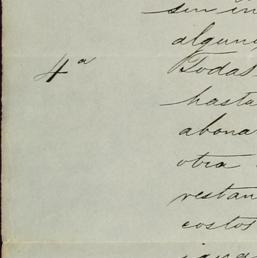 sin in
alguno
4ª Todas
hasta
abona
otra
restan
costos